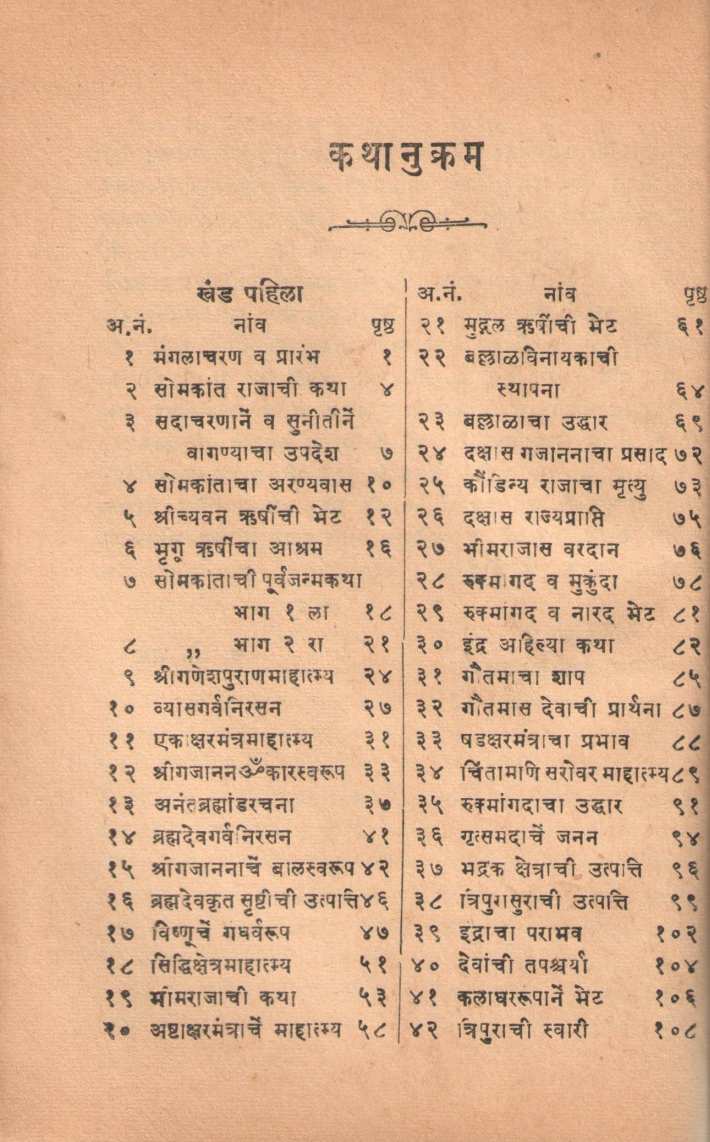 कथानुक्रम
खंड पहिला
अ.नं. नांव पृष्ठ
१ मंगलाचरण व प्रारंभ १
२ सोमकांत राजाची कथा ४
३ सदाचरणानें व सुनीतीनें
वागण्याचा उपदेश ७
४ सोमकांताचा अरण्यवास १०
५ श्रीच्यवन ऋषींची भेट १२
६ भृगू ऋषींचा आश्रम १६
७ सोमकांताची पूर्वजन्मकथा
भाग १ ला १८
८ ,, भाग २ रा २१
९ श्रीगणेशपुराणमाहात्म्य २४
१० व्यासगर्वनिरसन २७
११ एकाक्षरमंत्रमाहात्म्य ३१
१२ श्रीगजाननॐकारस्वरूप ३३
१३ अनंतब्रह्मांडरचना ३७
१४ ब्रह्मदेवगर्वनिरसन ४१
१५ श्रीगजाननाचें बालस्वरूप ४२
१६ ब्रह्मदेवकृत सृष्टीची उत्पात्ति ४६
१७ विष्णूचें गधर्वरूप ४७
१८ सिद्धिक्षेत्रमाहात्म्य ५१
१९ भीमराजाची कथा ५३
२० अष्टाक्षरमंत्राचें माहात्म्य ५८
अ.नं. नांव पृष्ठ
२१ मुद्गल ऋषींची भेट ६१
२२ बल्लाळविनायकाची
स्थापना ६४
२३ बल्लाळाचा उद्धार ६९
२४ दक्षास गजाननाचा प्रसाद ७२
२५ कौंडिन्य राजाचा मृत्यु ७३
२६ दक्षास राज्यप्राप्ति ७५
२७ भीमराजास वरदान ७६
२८ रुक्मागद व मुकुंदा ७८
२९ रुक्मांगद व नारद भेट ८१
३० इंद्र अहिल्या कथा ८२
३१ गौतमाचा शाप ८५
३२ गौतमास देवाची प्रार्थना ८७
३३ षडक्षरमंत्राचा प्रभाव ८८
३४ चिंतामाणि सरोवर माहात्म्य ८९
३५ रुक्मांगदाचा उद्धार ९१
३६ गृत्समदाचें जनन ९४
३७ भद्रक क्षेत्राची उत्पात्ति ९६
३८ त्रिपुरासुराची उत्पात्ति ९९
३९ इंद्राचा पराभव १०२
४० देवांची तपश्चर्या १०४
४१ कलाधररूपानें भेट १०६
४२ त्रिपुराची स्वारी १०८